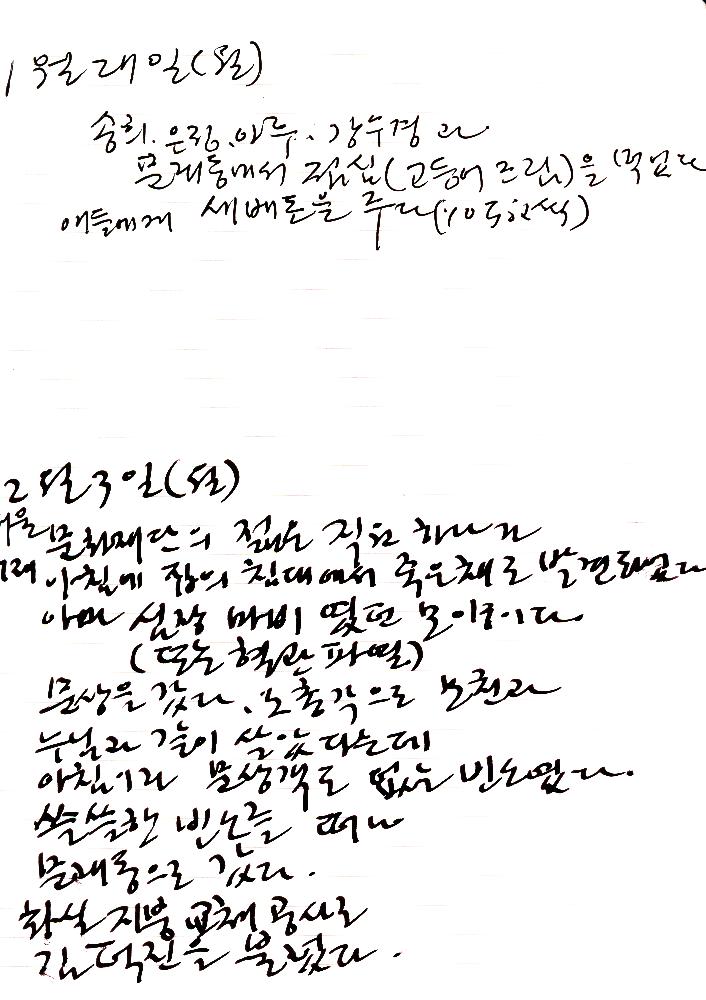 1월 27일(월)
송희. 은정. 아루. 강수경과
문래동에서 점심(고등어 조림)을 먹었다
애들에게 세배돈을 주다(10만원씩)
2월 3일(월)
서울 문화재단의 젊은 직원 하나가
어제 아침에 집의 침대에서 죽은채로 발견되었다
아마 심장 마비 였던 모양이다
(또는 혈관 파열)
문상을 갔다. 노총각으로 모친과
누님과 같이 살았다는데
아침이라 문상객도 없는 빈소였다.
쓸쓸한 빈소를 떠나
문래동으로 갔다.
화실 지붕 교체 공사로
김덕진을 불렀다.